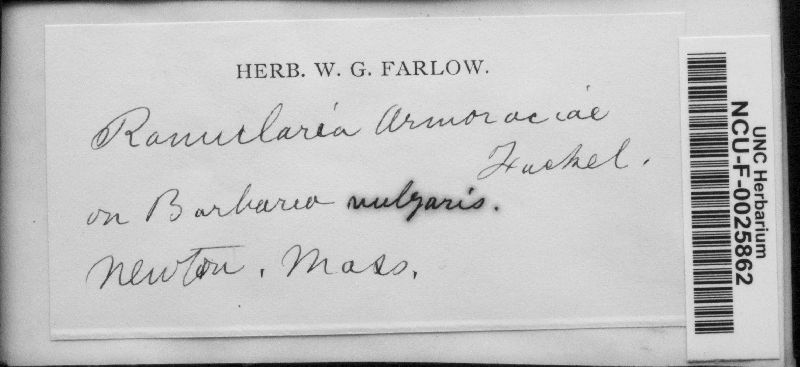 HERB. W. G. FARLOW.
Ramularia Armoraciae
Fuckel.
on Barbarea vulgaris.
Newton, Mass.
UNC Herbarium
NCU-F-0025862